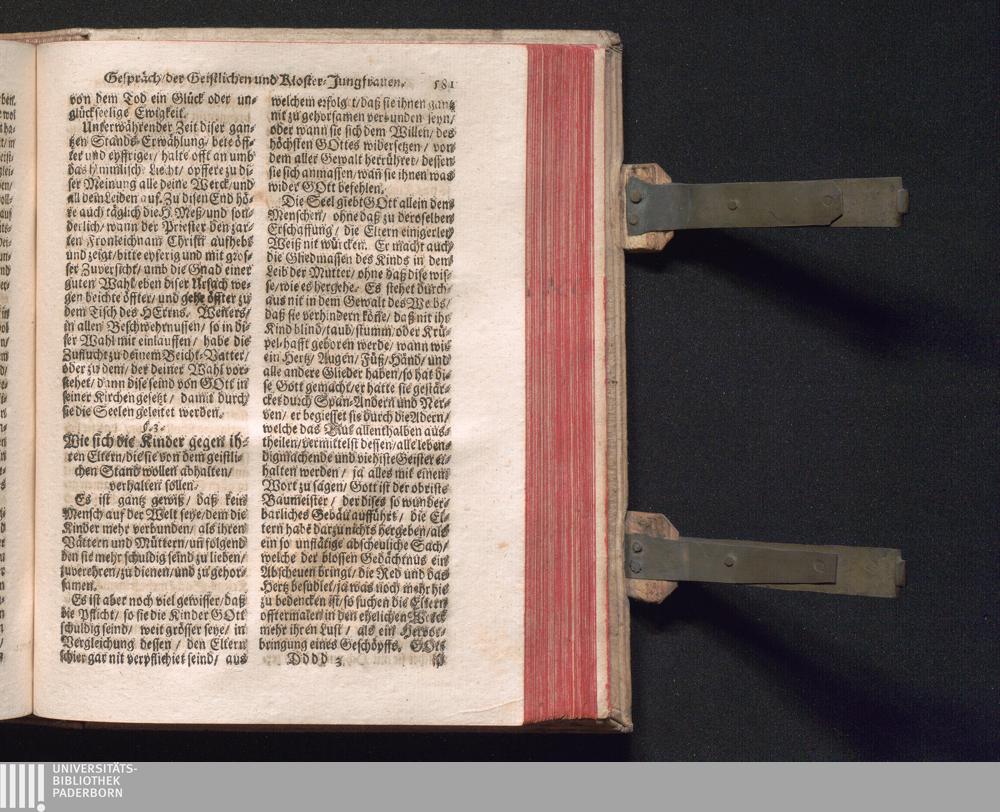 Gespräch/ der Geistlichen und Kloster-Jungfrauen. 581
von dem Tod ein Glück oder un-
glückseelige Ewigkeit.
Unterwährender Zeit diser gan-
tzen Stands-Erwählung/ bete öff-
ter und eyffriger/ halte offt an umb
das himmlisch Liecht/ opffere zu di-
ser Meinung alle deine Werck/ und
all dein Leiden auf. Zu disen End hö-
re auch täglich die H. Meß/ und son-
derlich/ wann der Priester den zar-
ten Fronleichnam Christi aufhebt
und zeigt/ bitte eyferig und mit gros-
ser Zuversicht/ umb die Gnad einer
guten Wahl/ eben diser Ursach we-
gen beichte öffter/ und gehe öffter zu
dem Tisch des HErrns. Weiters/
in allen Beschwehrnussen/ so in di-
ser Wahl mit einlauffen/ habe die
Zuflucht zu deinem Beicht-Vatter/
oder zu dem/ der deiner Wahl vor-
stehet/ dann dise seind von GOtt in
seiner Kirchen gesetzt/ damit durch
sie die Seelen geleitet werden.
§. 3.
Wie sich die Kinder gegen ih-
ren Eltern/ die sie von dem geistli-
chen Stand wollen abhalten/
verhalten sollen.
Es ist gantz gewiß/ daß kein
Mensch auf der Welt seye/ dem die
Kinder mehr verbunden/ als ihren
Vättern und Müttern/ uñ folgend
den sie mehr schuldig seind zu lieben/
zuverehren/ zu dienen/ und zu gehor-
samen.
Es ist aber noch viel gewisser/ daß
die Pflicht/ so sie die Kinder GOtt
schuldig seind/ weit grösser seye/ in
Vergleichung dessen/ den Eltern
schier gar nit verpflichtet seind/ aus
welchem erfolgt/ daß sie ihnen gantz
nit zu gehorsamen verbunden seyn/
oder wann sie sich dem Willen/ des
höchsten GOttes widersetzen/ von
dem aller Gewalt herrühret/ dessen
sie sich anmassen/ wañ sie ihnen was
wider GOtt befehlen.
Die Seel giebt GOtt allein dem
Menschen/ ohne daß zu deroselben
Erschaffung/ die Eltern einigerley
Weiß nit würcken. Er macht auch
die Gliedmassen des Kinds in dem
Leib der Mutter/ ohne daß dise wis-
se/ wie es hergehe. Es stehet durch-
aus nit in dem Gewalt des Weibs/
daß sie verhindern köñe/ daß nit ihr
Kind blind/ taub/ stumm/ oder Krü-
pel-hafft geboren werde/ wann wir
ein Hertz/ Augen/ Füß/ Händ/ und
alle andere Glieder haben/ so hat di-
se Gott gemacht/ er hatte sie gestär-
cket durch Span-Andern und Ner-
ven/ er begiesset sie durch die Adern/
welche das Blut allenthalben aus-
theilen/ vermittelst dessen/ alle leben-
digmachende und viehiste Geister er-
halten werden/ ja alles mit einem
Wort zu sagen/ Gott ist der obriste
Baumeister/ der dises so wunder-
barliches Gebäu aufführt/ die El-
tern habē darzu nichts hergeben/ als
ein so unflätige abscheuliche Sach/
welche der blossen Gedächtnus ein
Abscheuen bringt/ die Red und das
Hertz besudlet/ ja was noch mehr hie
zu bedencken ist/ so suchen die Eltern
offtermalen in den ehelichen Werck
mehr ihren Lust/ als ein Hervor-
bringung eines Geschöpffs. GOtt
Dddd 3
UNIVERSITÄTS-
BIBLIOTHEK
PADERBORN